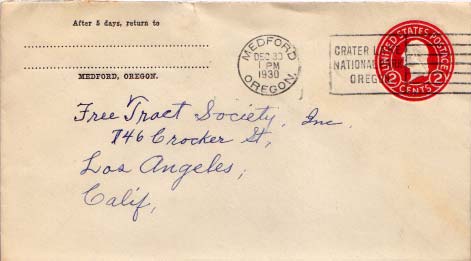 After 5 days, return to
MEDFORD, OREGON.
MEDFORD
DEC 30
1 PM
1930
OREGON.
CRATER L
NATIONAL PARK
OREGO
UNITED STATES POSTAGE
2 2
CENTS
Free Tract Society, Inc.
746 Crocker St,
Los Angeles,
Calif,